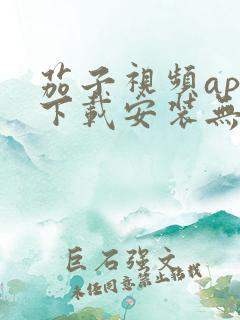 茄子視頻ap
下載安裝無
巨石強文
未任同意禁止转载